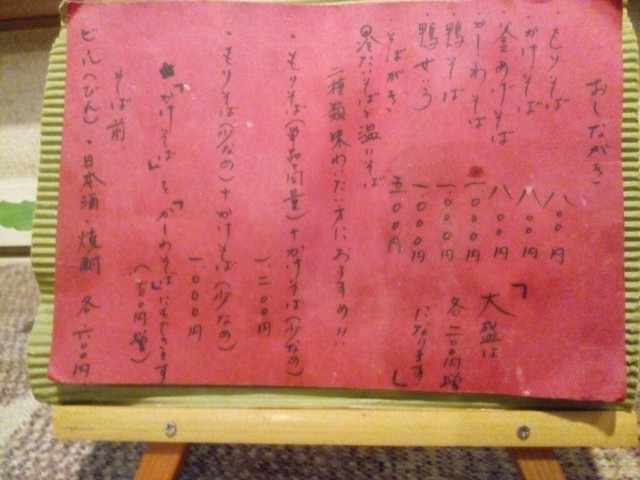 おしながき
・もりそば 八〇〇円
・かけそば 八〇〇円
・釜あげそば 八〇〇円
・かしわそば 一〇〇〇円
・鴨そば 一〇〇〇円
・鴨せいろ 一〇〇〇円
・そばがき 五〇〇円
「大盛は
各二〇〇円増
になります」
冷たいそばと温いそば
二種類味わいたい方におすすめ!!
・もりそば(単品と同量)+かけそば(少なめ)
一、二〇〇円
・もりそば(少なめ)+かけそば(少なめ)
一〇〇〇円
「かけそば」を「かしわそば」にもできます
(一〇〇円増)
そば前
ビール(びん)・日本酒・焼酎 各六〇〇円